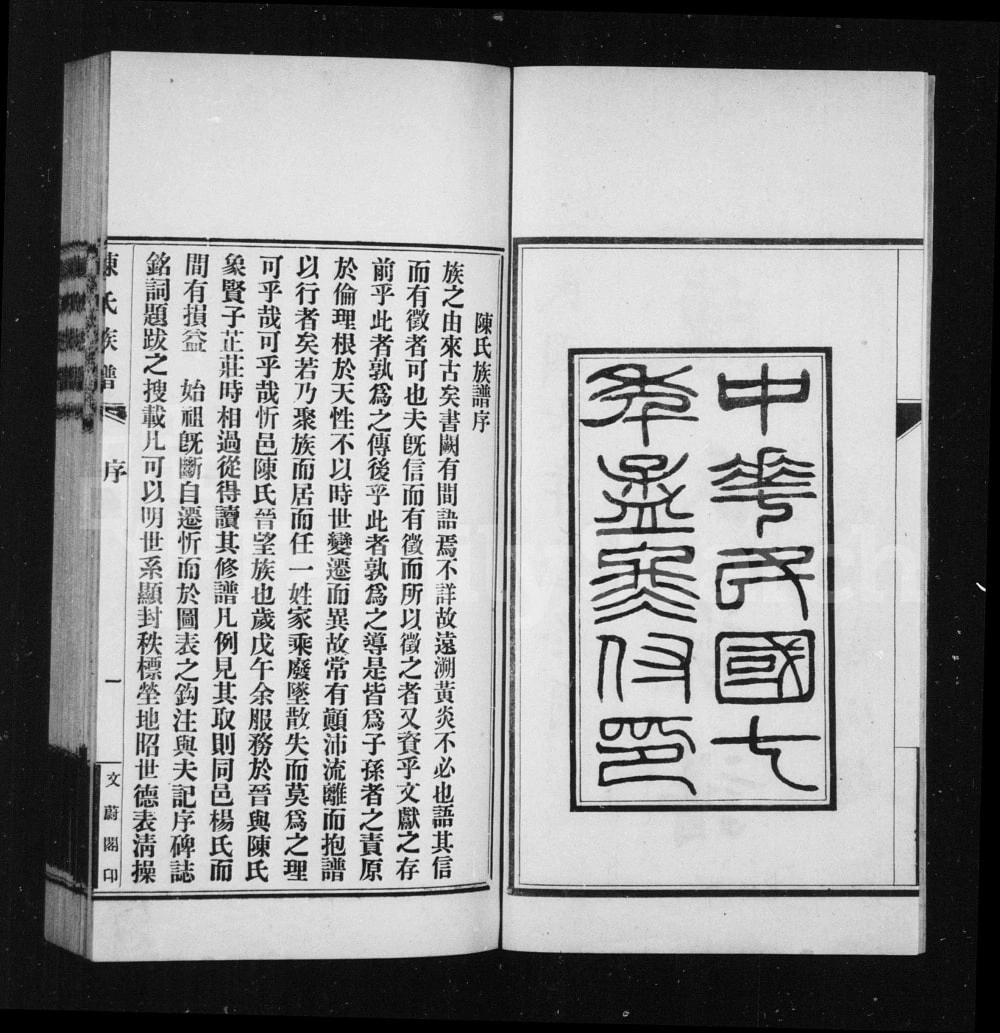 中華民國七
年孟冬付印
陳氏族譜序
族之由來古矣書闕有間語焉不詳故遠溯黃炎不必也語其信
而有徵者可也夫旣信而有徵而所以徵之者又資乎文獻之存
前乎此者孰爲之傳後乎此者孰爲之導是皆爲子孫者之責原
於倫理根於天性不以時世變遷而異故常有顛沛流離而抱譜
以行者矣若乃聚族而居而任一姓家乘廢墜散失而莫爲之理
可乎哉可乎哉忻邑陳氏晉望族也歲戊午余服務於晉與陳氏
象賢子芷莊時相過從得讀其修譜凡例見其取則同邑楊氏而
間有損益　始祖旣斷自遷忻而於圖表之鈎注與夫記序碑誌
銘詞題跋之搜載凡可以明世系顯封秩標塋地昭世德表淸操
陳氏族譜　序　一　文蔚閣印